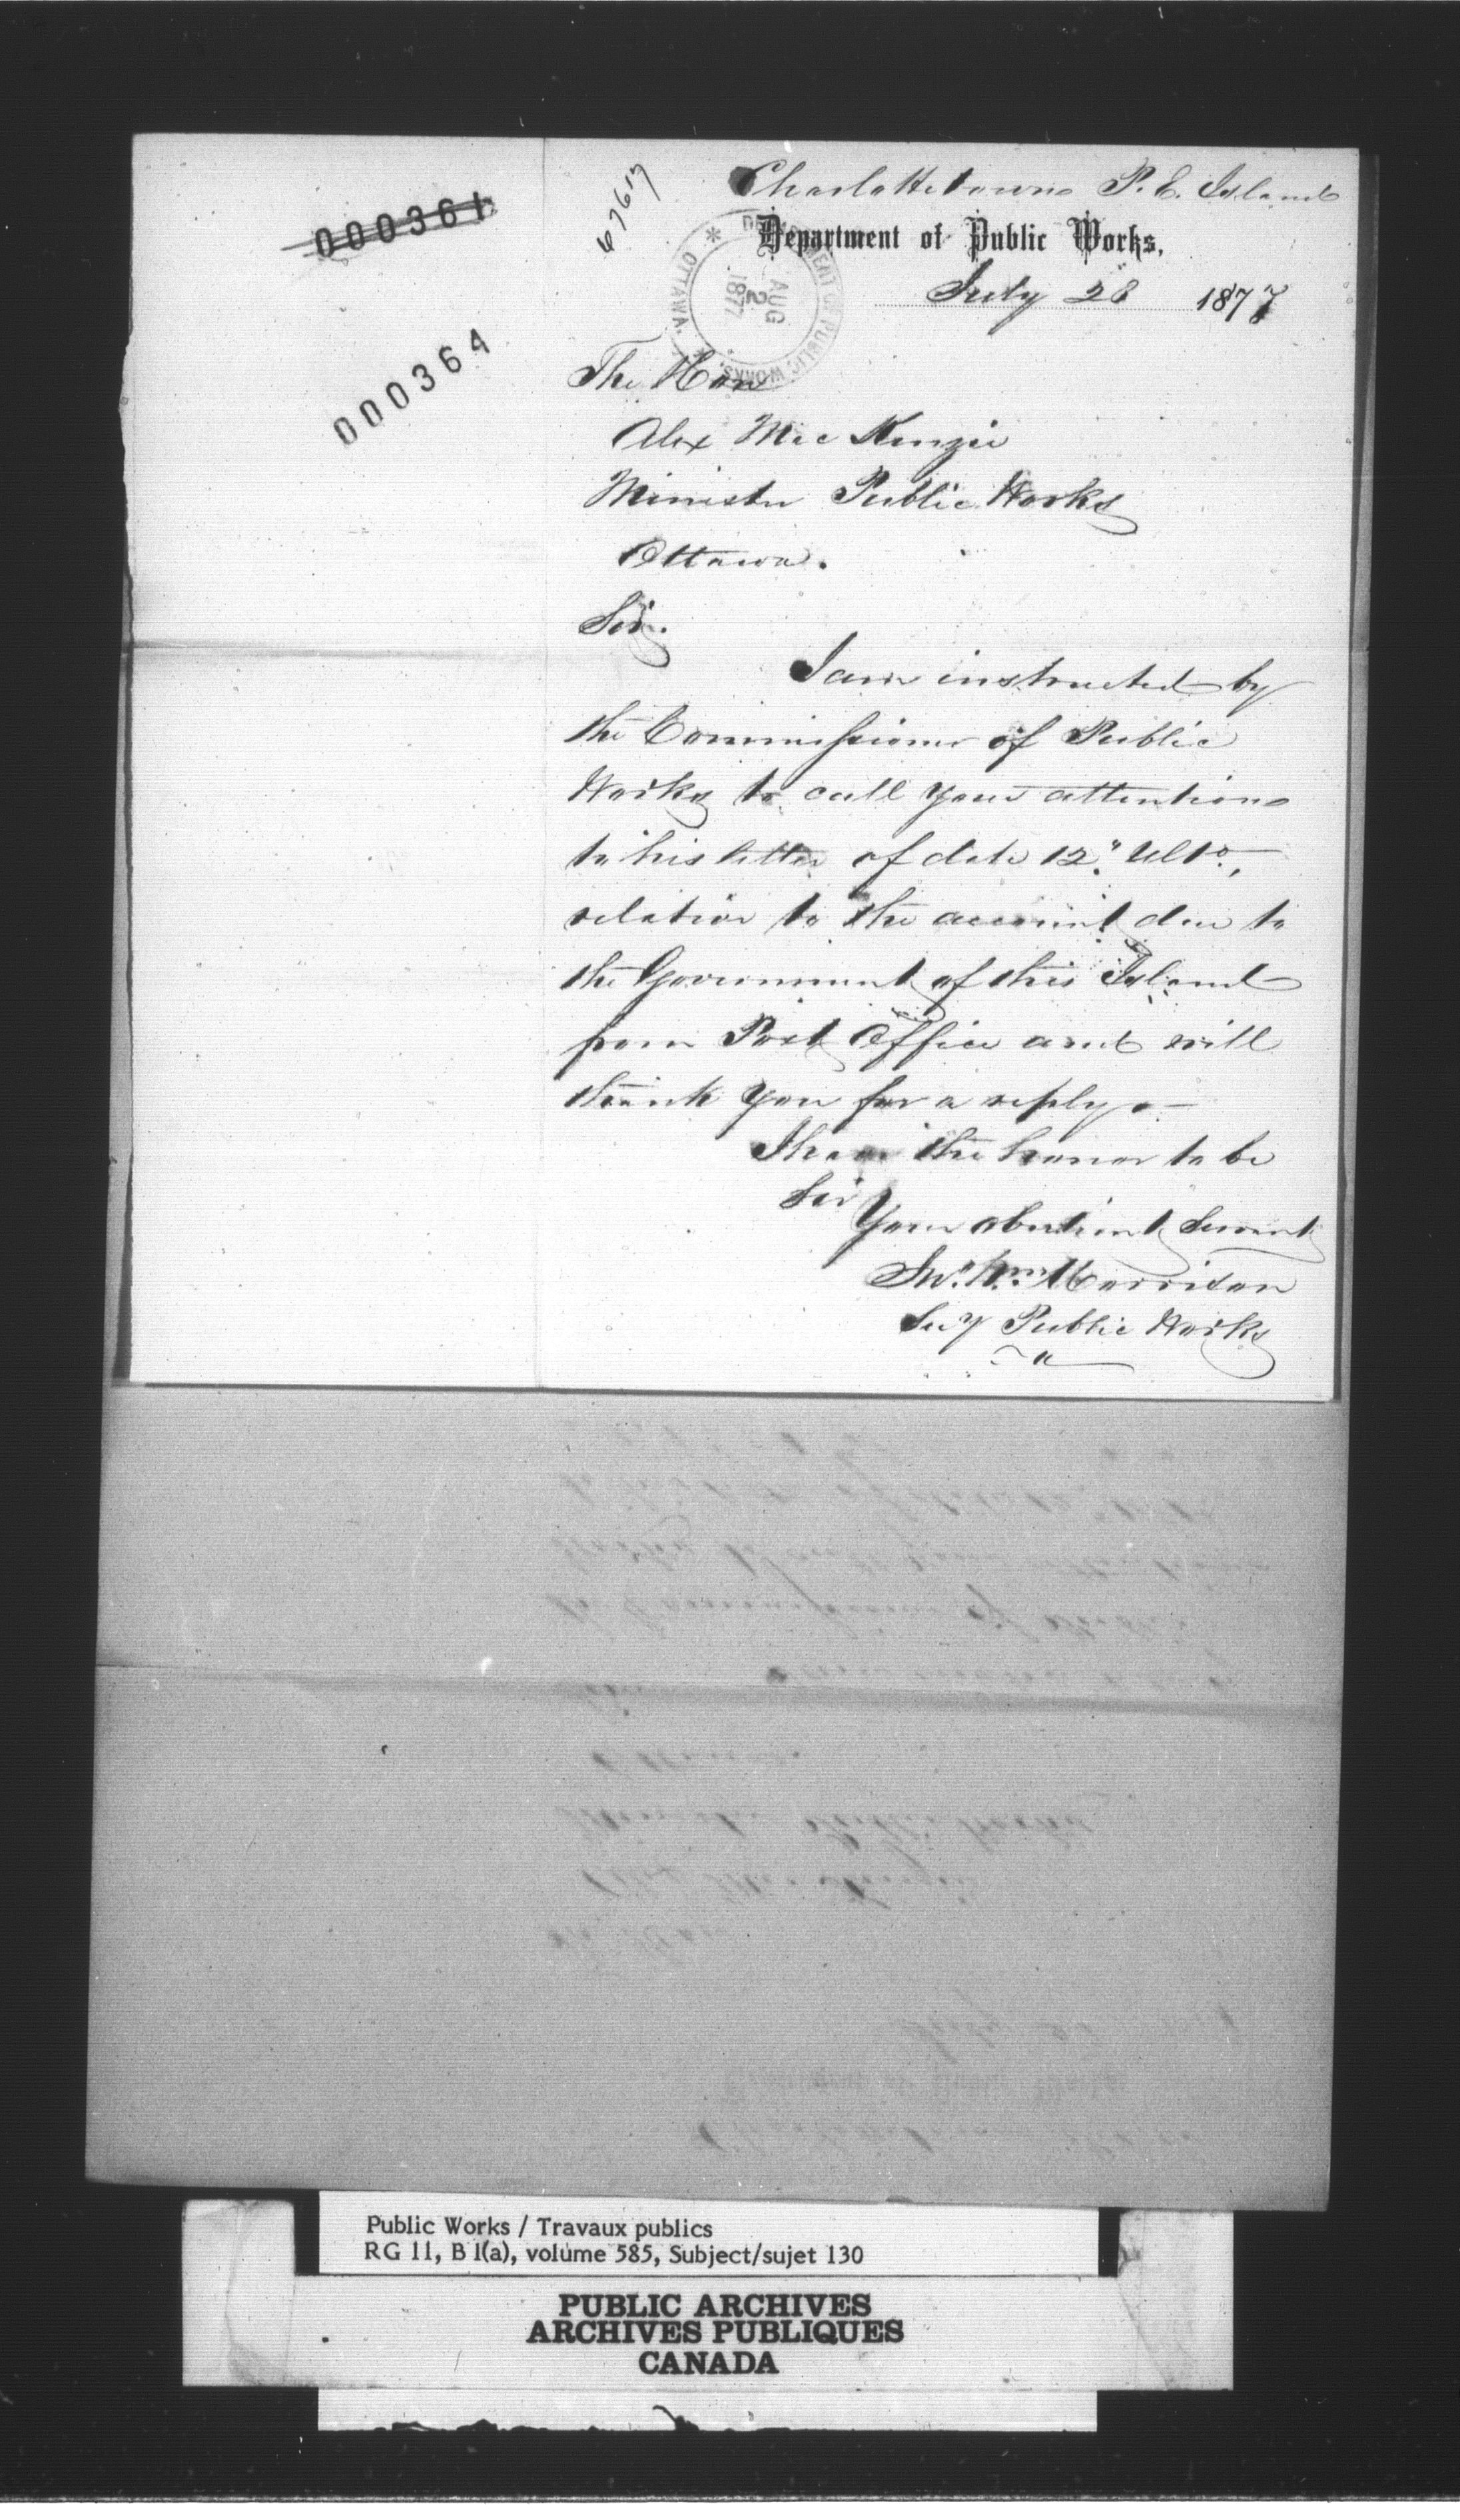 000361
000364
67617
Charlottetown P. E. Island
Department of Public Works,
July 28" 1877
DEPARTMENT OF PUBLIC WORKS. * OTTAWA. *
AUG
2
1877
The Hon
Alex MacKenzie
Minister Public Works
Ottawa.
Sir.
I am instructed by
the Commissioner of Public
Works to call your attention
to his letter of date 12". Ulto.,
relation to the account due to
the Government of this Island
from Post Office and will
thank you for a reply.—
I have the honor to be
Sir
Your obedient Servant
Jno. Wm. Morrison
Secy Public Works
Public Works / Travaux publics
RG 11, B 1(a), volume 585, Subject/sujet 130
PUBLIC ARCHIVES
ARCHIVES PUBLIQUES
CANADA